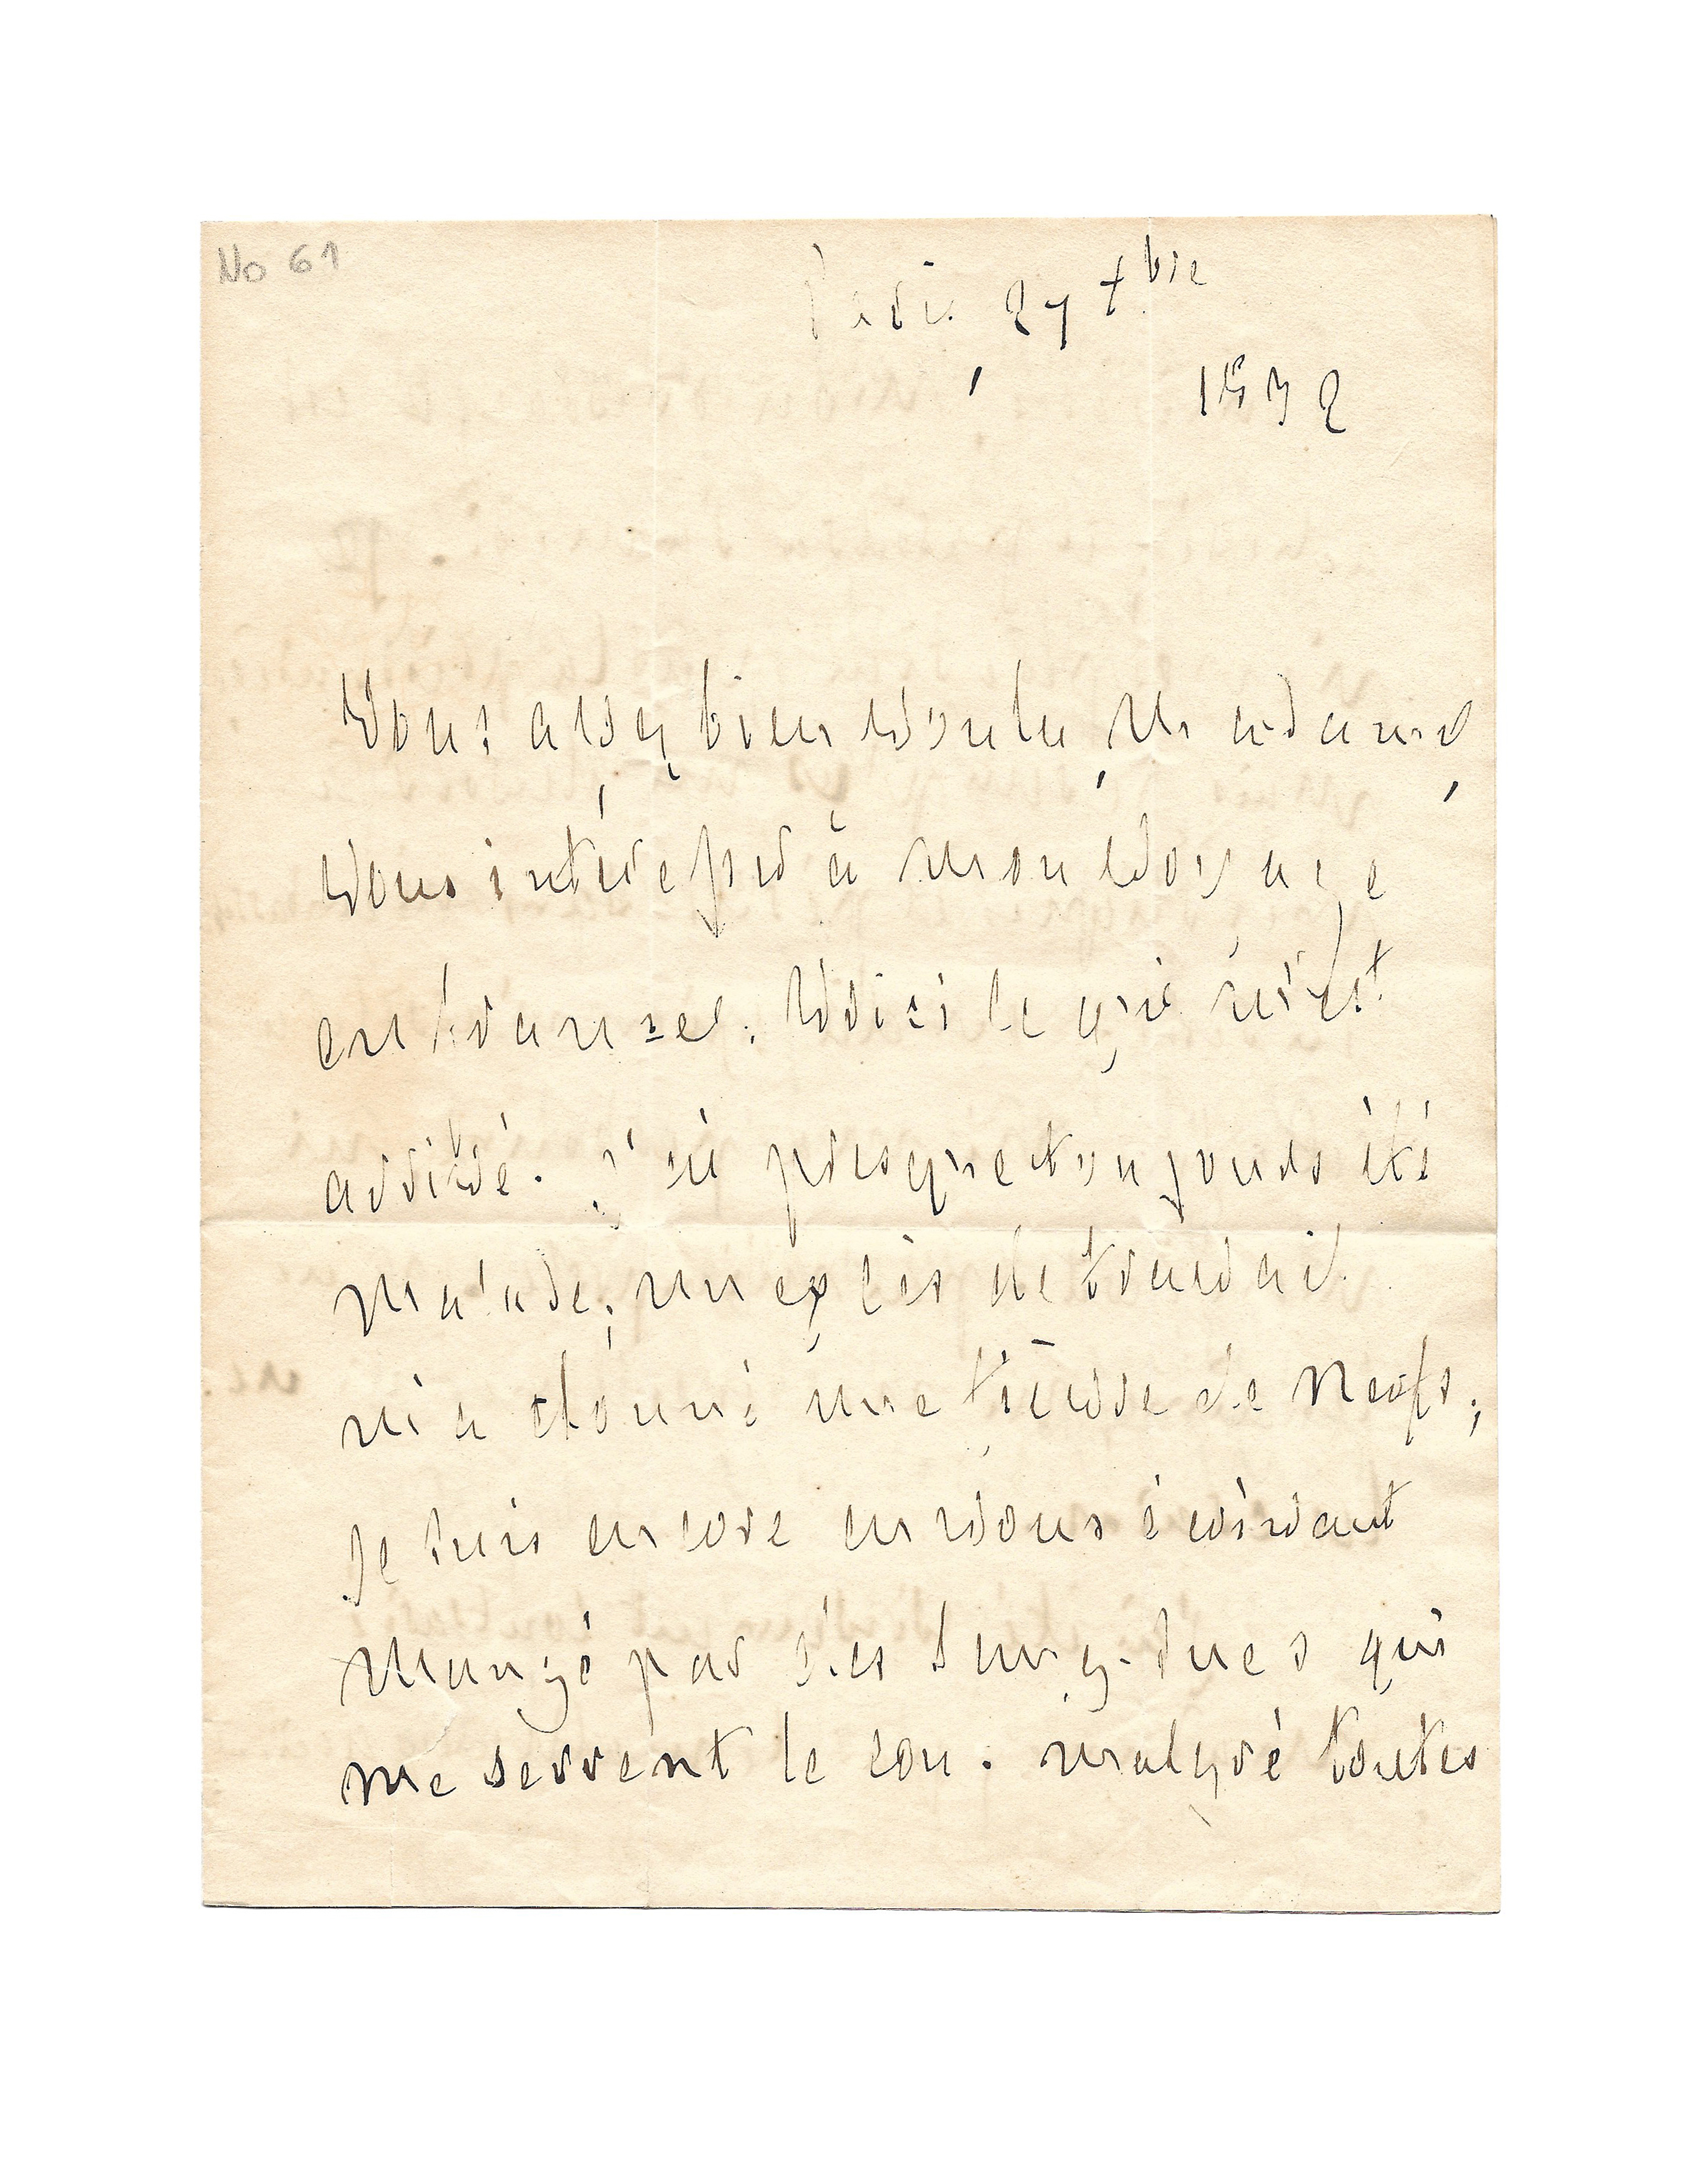 No 61
Paris, 27 xbre
1832
Vous avez bien voulu, Madame,
vous intéresser à mon voyage
en france. Voici ce qui m'est
arrivé. J'ai presque toujours été
malade; un excès de travail
m'a donné une fièvre de nerfs;
je suis encore en vous écrivant
mangé par des sang-sues qui
me serrent le cou. malgré toutes